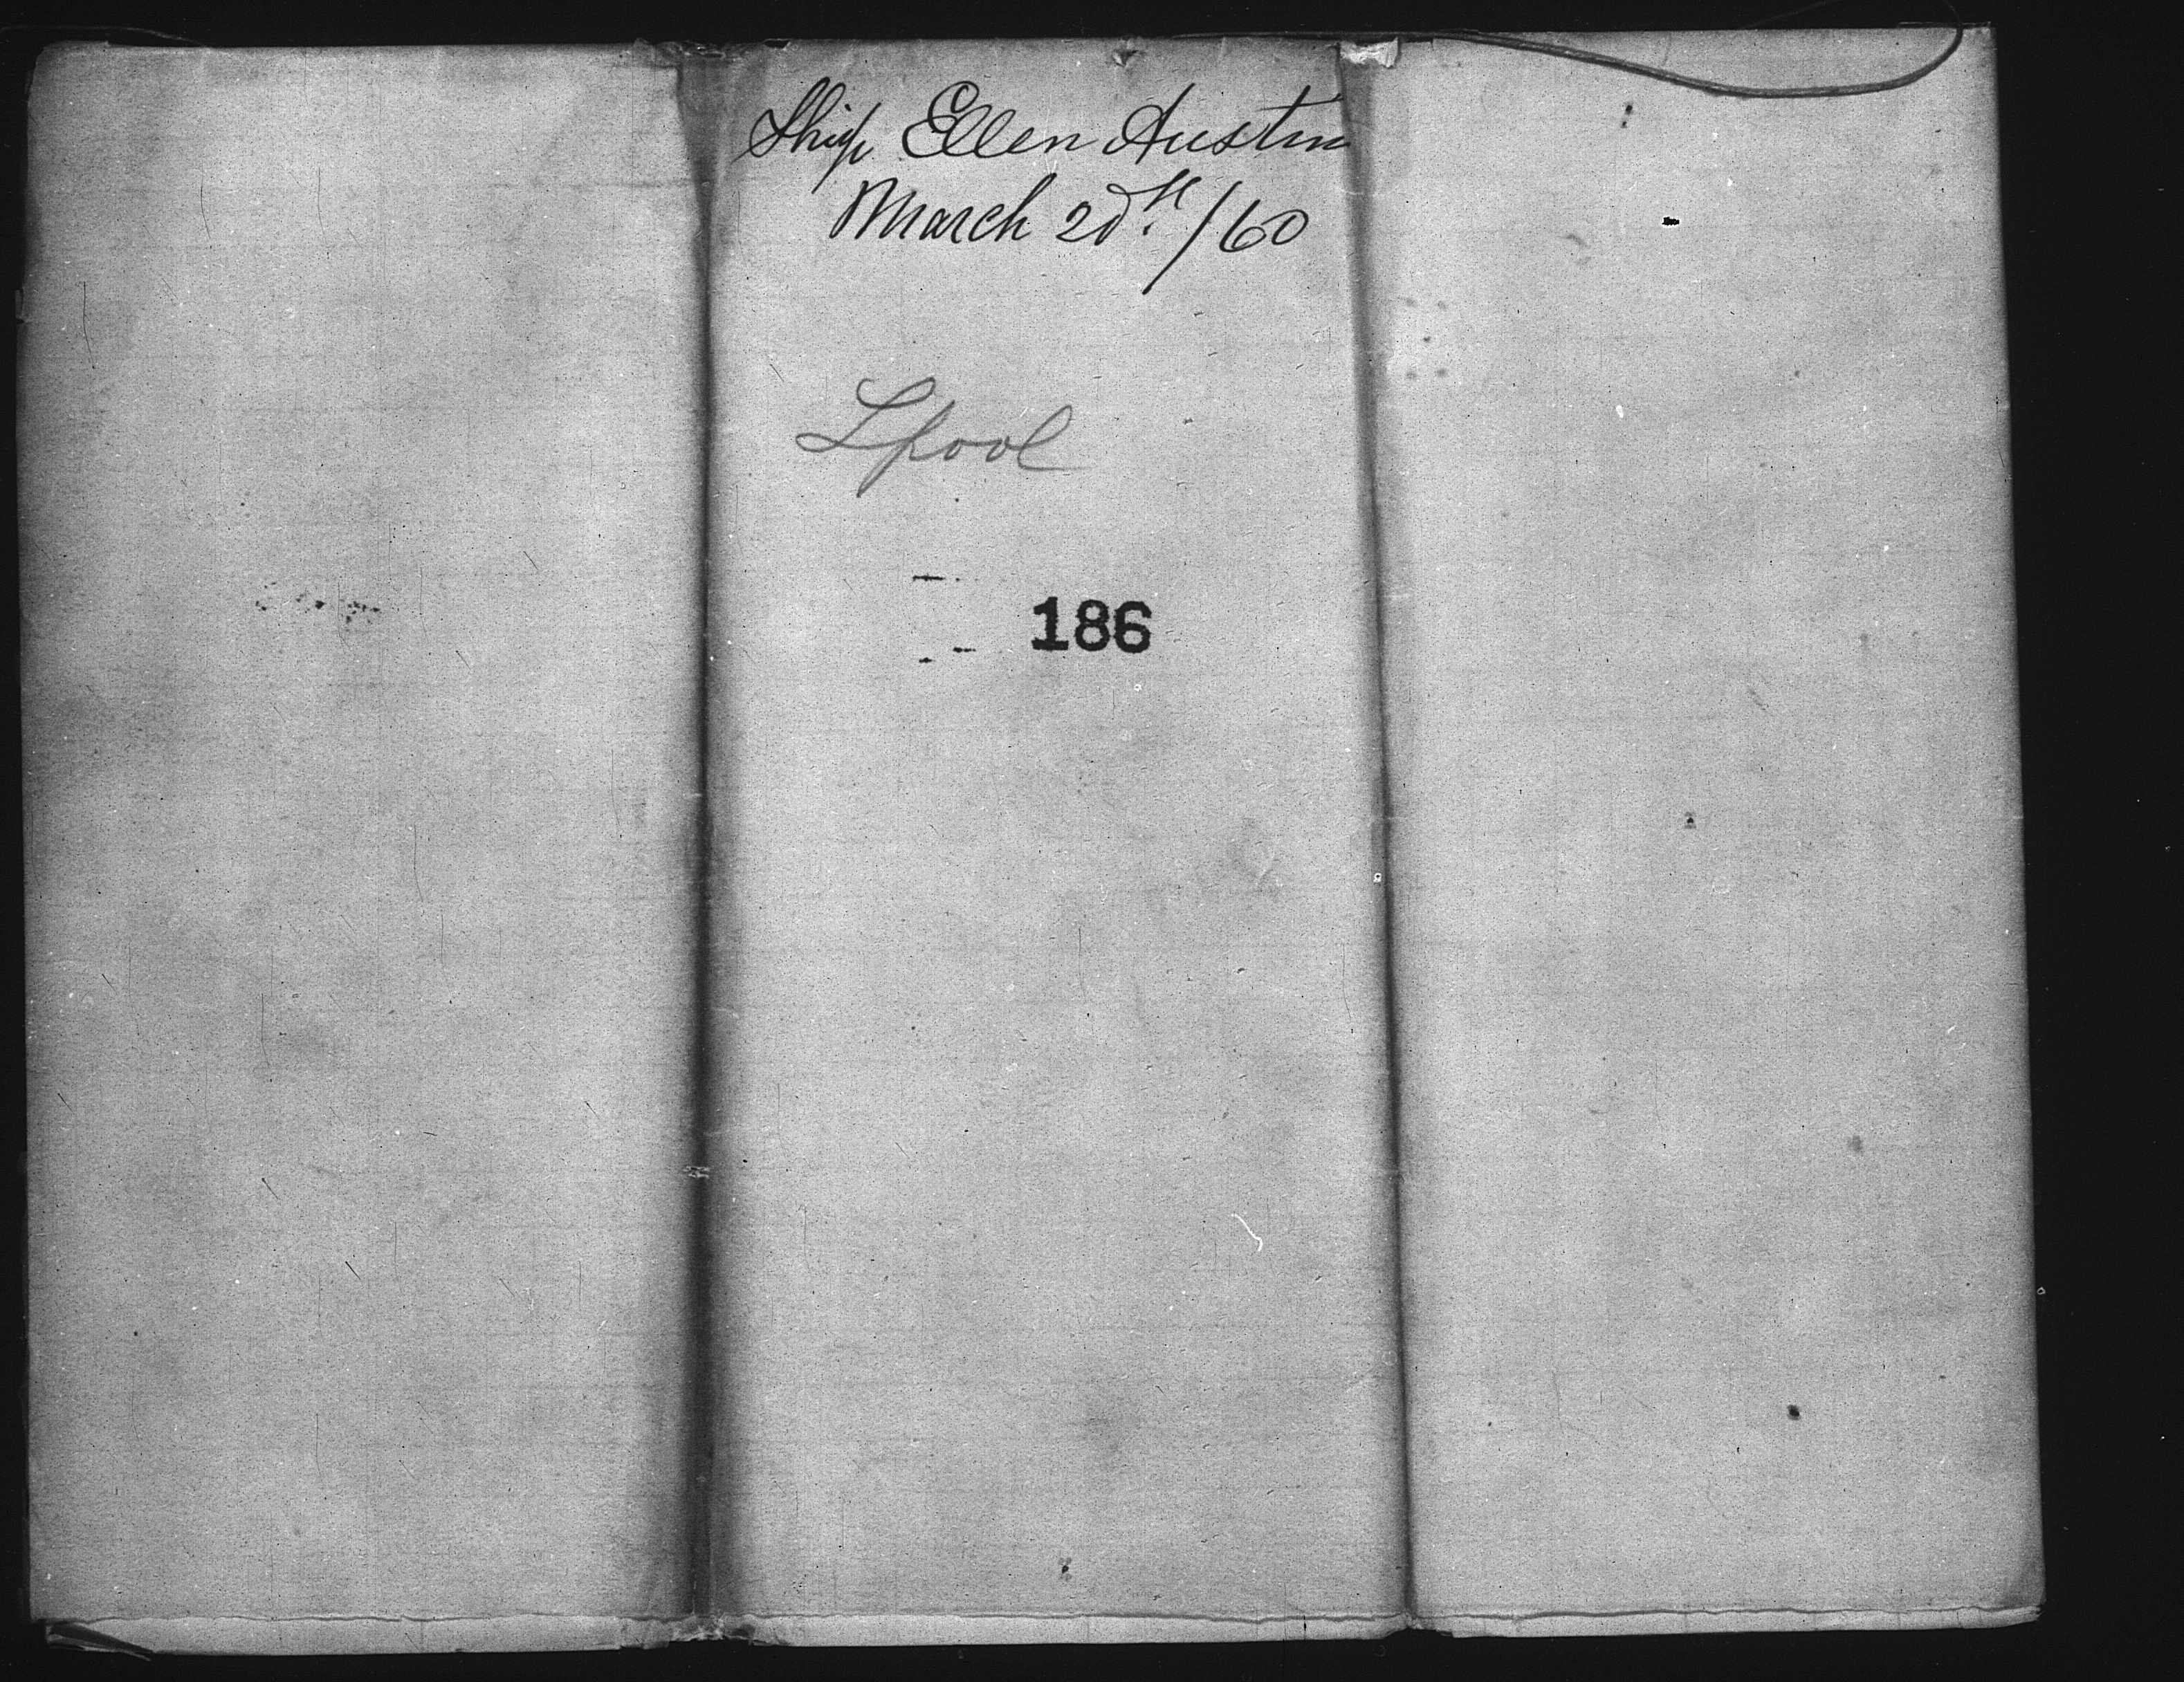 Ship Ellen Austin
March 20th/60
Lpool
186